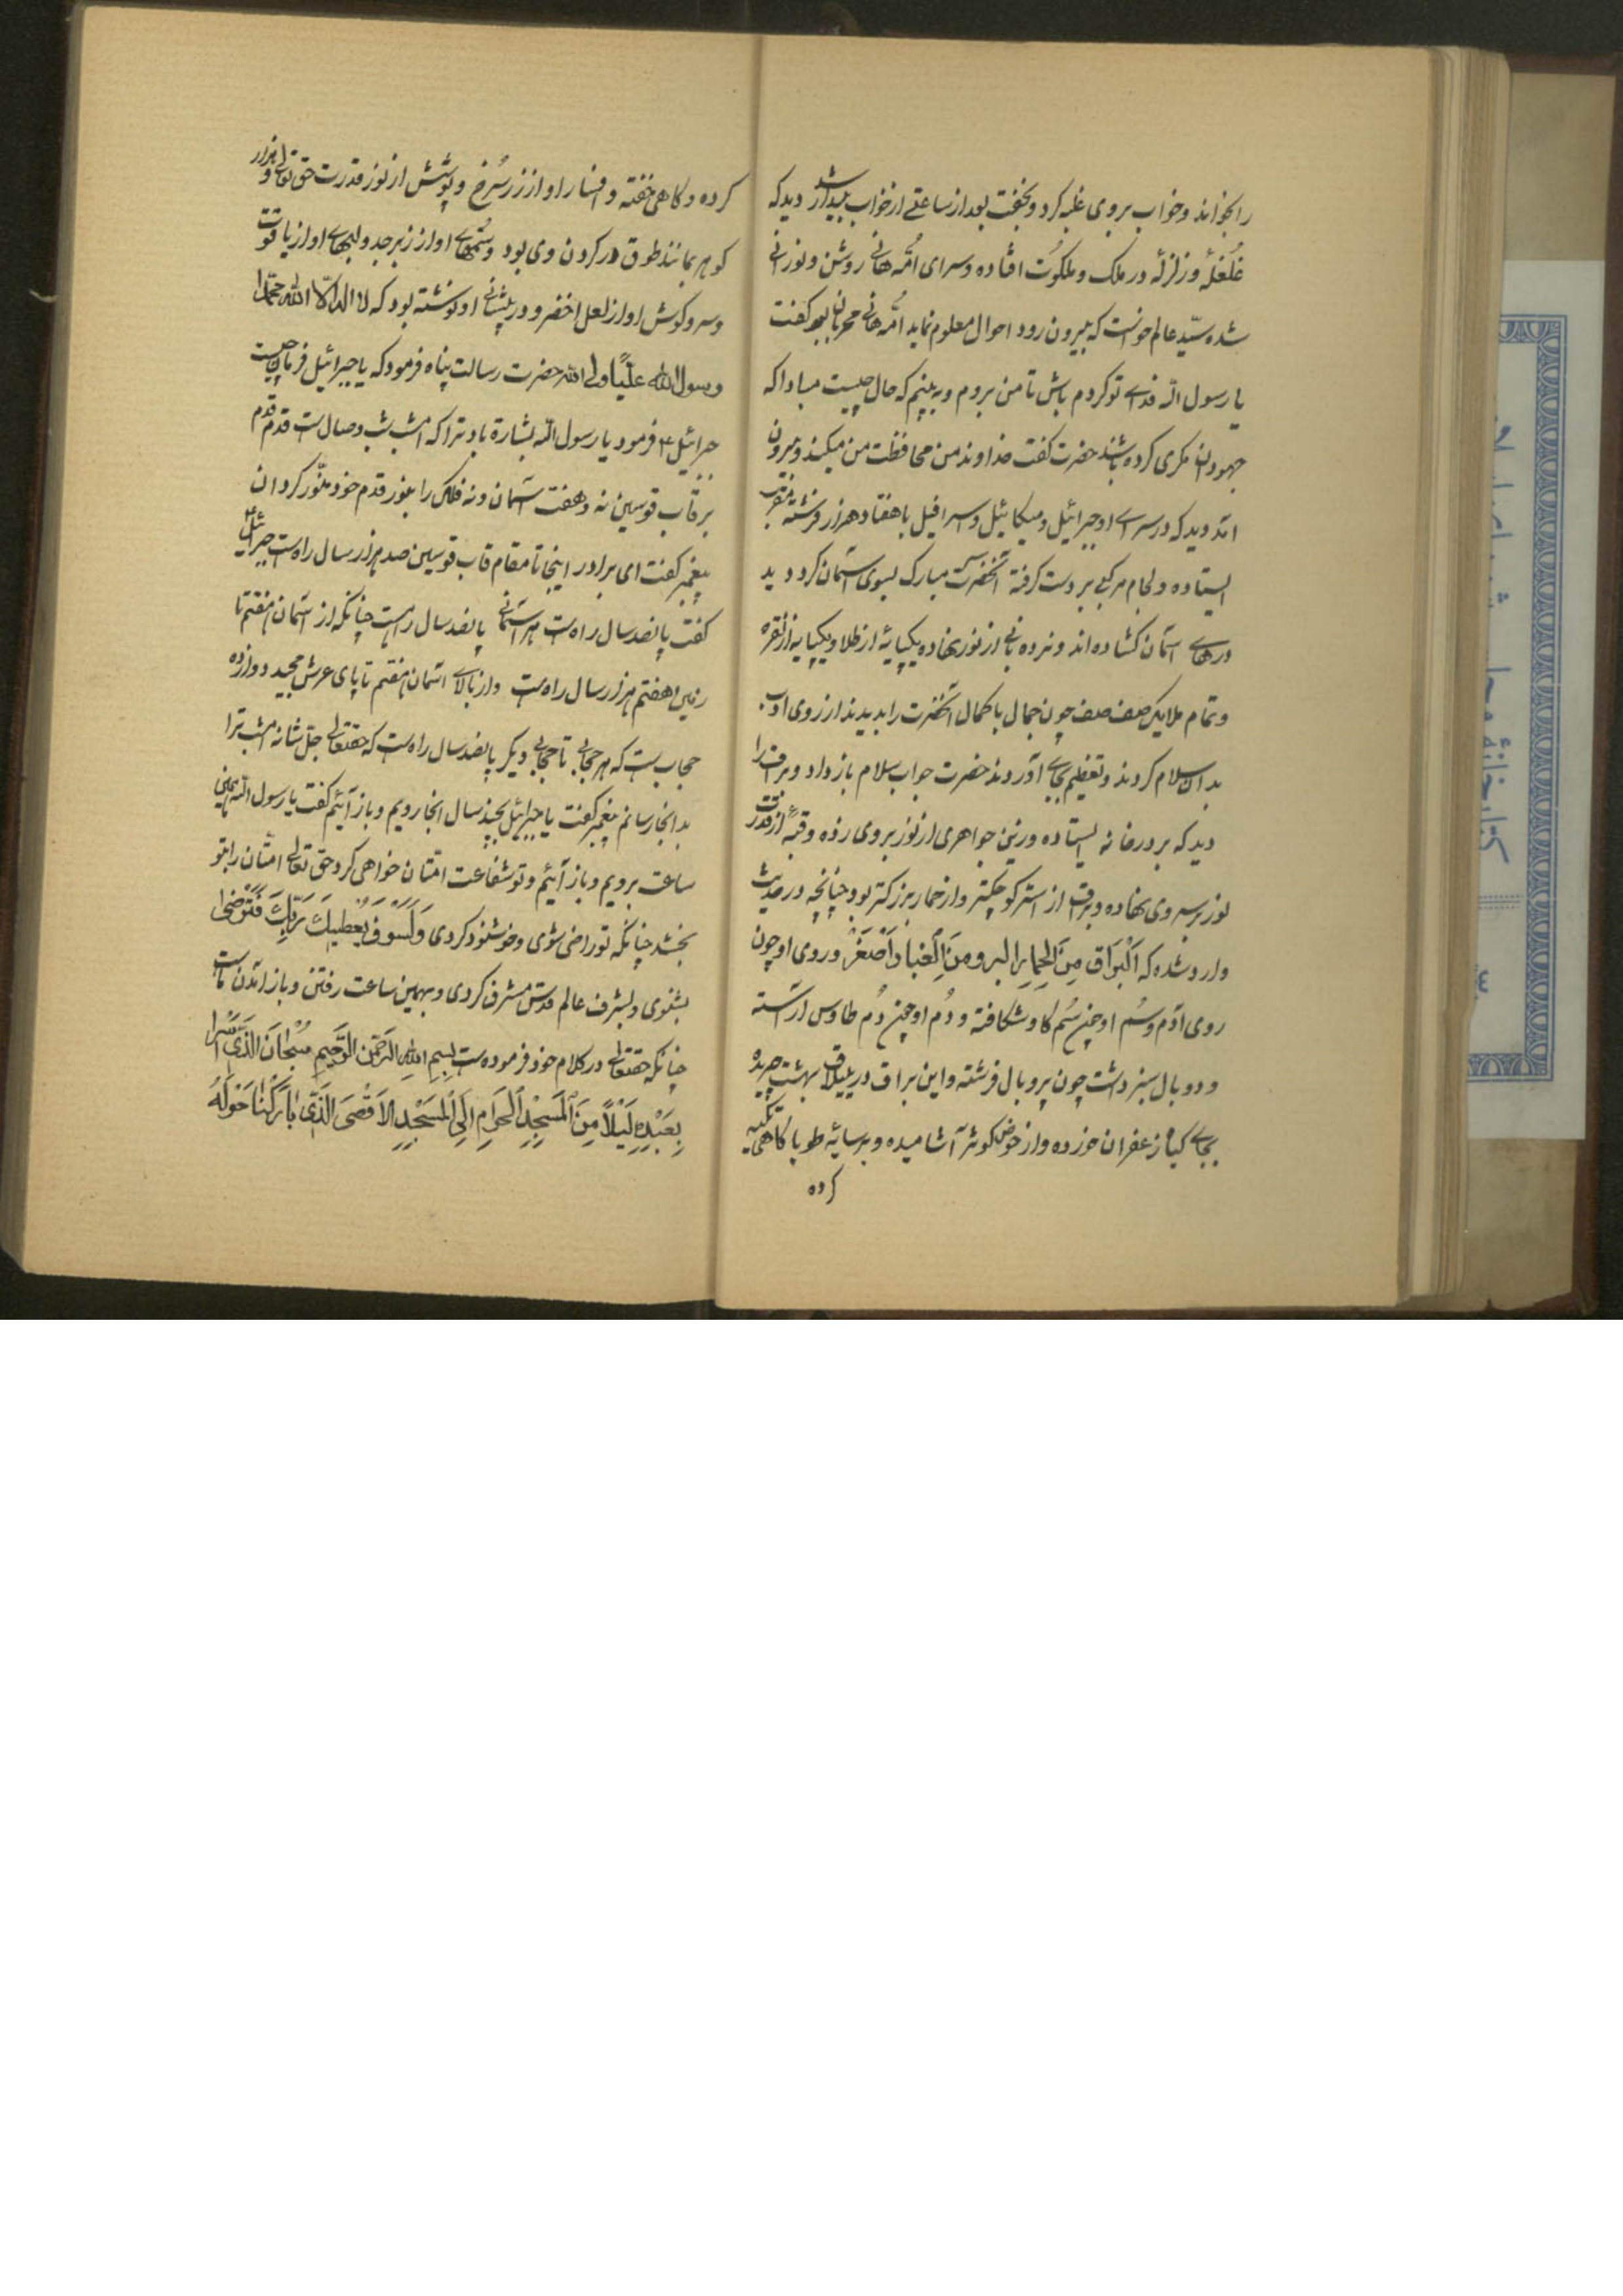 را بخواند و خواب بروی غلبه کرد و بخفت بعد از ساعتے از خواب بیدار شد دید که
غُلغلهٔ و زلزلهٔ در ملک و ملکوُت افتاده و سرای امُّ هانے روشن و نورانے
شده سیّد عالم خواست که بیرون رود احوال معلوم نماید امُّ هانے گفت
یا رسول اللّه فدای تو کردم باش تا من بروم و به بینم که حال چیست مبادا که
جهودان مکری کرده باشند حضرت گفت خداوند من محافظت من میکند و بیرون
آمد دید که در سرای او جبرائیل و میکائیل و اسرافیل با هفتاد هزار فرشته مقرب
ایستاده و لجام مرکبے بر دست گرفته آنحضرت مبارک بسوی آسمان کرد دید
درهای آسمان کشاده اند و نرده بانے از نور نهاده یکپایهٔ از طلا و یکپایه از نقره
و تمام ملایک صف صف چون جمال با کمال آنحضرت را بدیدند از روی ادب
بدان سلام کردند و تعظیم بجای آوردند حضرت جواب سلام باز داد و براق را
دید که بر در خانه ایستاده و زین جواهری از نور بروی زده و قبّهٔ از قدرت
نور بر سر وی نهاده و براق از استر کوچکتر و از حمار بزرکتر بود چنانچه در حدیث
وارد شده که اَلْبَراق مِنَ الحِمایِر البر و مِنَ الِْغبا وَ اَصْغَرْ و روی او چون
روی آدم و سُم او چون سُم کاو شکافته و دُم او چون دُم طاوس آراسته
و دو بال سبز داشت چون پر و بال فرشته و این براق در ییلاق بهشت چریده
بجای کیاه زعفران خورده و از حوض کوثر آشامیده و بر سایهٔ طوبا کاهی تکیه
کرده
کرده و کاهی خفته و افسار او از زر سُرخ و پوشش از نور قدرت حق تعالی و هزار
کوهر بمانند طوق در کردن وی بود و سُمهای او از زبرجد و لبهای او از یاقوت
و سر و کوش او از لعل اخضر و در پیشانے او نوشته بود که لا اله الّا اللّه محمّدا
رسول الله علیًّا ولی الله حضرت رسالت پناه فرمود که یا جبرائیل فرمان چیست
جبرائیل ع فرمود یا رسول اللّه بشارة باد ترا که امشب شب وصال است قدم قدم
بر قاب قوسین نه و هفت آسمان و نه فلک را بنور قدم خود منّور کردان
پیغمبر گفت ای برادر اینجا تا مقام قاب قوسین صد هزار سال راه است جبرائیل
گفت پانصد سال راه است هر آسمانے پانصد سال راهست چنانکه از آسمان هفتم تا
زمین هفتم هزار سال راه است و از بالای آسمان هفتم تا پای عرش مجید دوازده
حجاب است که هر حجابی تا حجابی دیگر پانصد سال راه است که حقتعالی جلّ شانه امشب ترا
بدانجا رسانم پیغمبر گفت یا جبرائیل بچند سال آنجا رویم و باز آئیم گفت یا رسول اللّه بهمین
ساعت برویم و باز آئیم و تو شفاعت امّتان خواهی کرد حق تعالی امّتان را بتو
بخشد چنانکه تو راضی شوی و خوشنود کردی وَلَسَوْفَ یُعطِیكَ رَبُّكَ فَتَرْضٰی
بشنوی و بشرف عالم قدس مشرف کردی و بهمین ساعت رفتن و باز آمدن ماست
چنانکه حقتعالی در کلام خود فرموده است بِسمِ اللّهِ الرَحمنِ الرَحیمِ سُبْحانَ الَذّی اَسْرا
بِعَبْدِهِ لَیْلاً مِنَ الْمَسجِدِ الْحَرامِ اِلَی الْمَسْجِدِ الاَقْصَی الَذّی بارَکْنا حَوْلَهُ